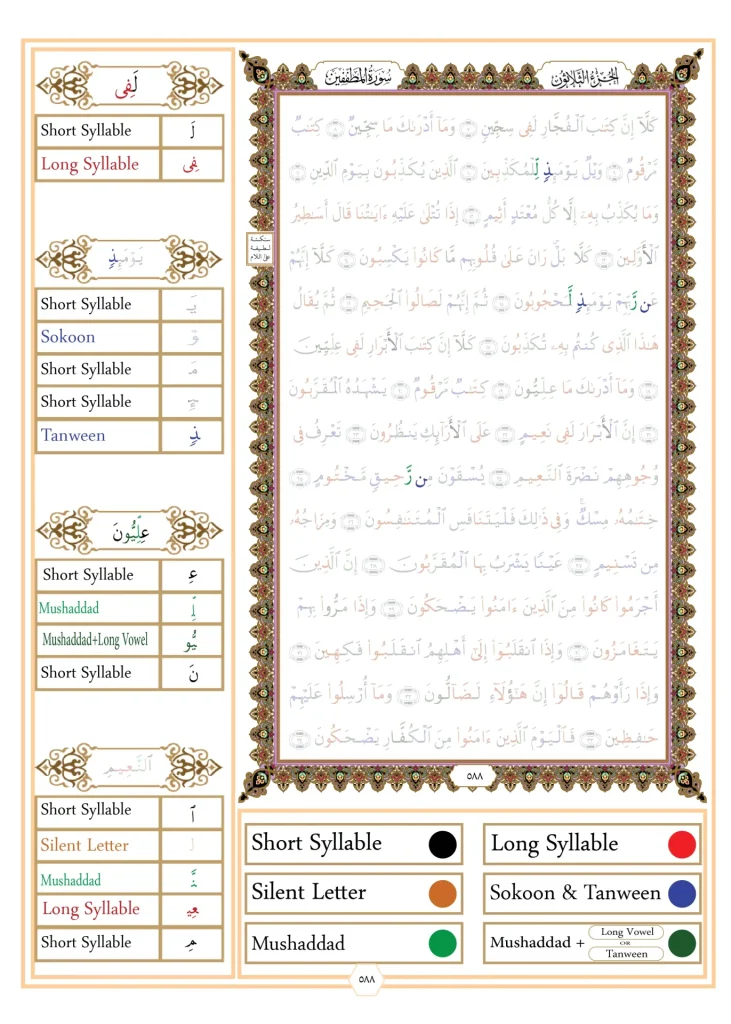 لَفِى
Short Syllable لَ
Long Syllable فِى
يَوْمَئِذٍ
Short Syllable يَـ
Sokoon وْ
Short Syllable مَـ
Short Syllable ئِـ
Tanween ـذٍ
عِلِّيُّونَ
Short Syllable عِـ
Mushaddad لِّـ
Mushaddad+Long Vowel يُّو
Short Syllable نَ
ٱلنَّعِيمِ
Short Syllable ٱ
Silent Letter ل
Mushaddad نَّـ
Long Syllable عِيـ
Short Syllable مِ
سُورَةُ الْمُطَفِّفِينَ
الْجُزْءُ الثَّلَاثُونَ
كَلَّآ إِنَّ كِتَـٰبَ ٱلْفُجَّارِ لَفِى سِجِّينٍ ٧ وَمَآ أَدْرَىٰكَ مَا سِجِّينٌ ٨ كِتَـٰبٌ
مَّرْقُومٌ ٩ وَيْلٌ يَوْمَئِذٍ لِّلْمُكَذِّبِينَ ١٠ ٱلَّذِينَ يُكَذِّبُونَ بِيَوْمِ ٱلدِّينِ ١١
وَمَا يُكَذِّبُ بِهِۦٓ إِلَّا كُلُّ مُعْتَدٍ أَثِيمٍ ١٢ إِذَا تُتْلَىٰ عَلَيْهِ ءَايَـٰتُنَا قَالَ أَسَـٰطِيرُ
ٱلْأَوَّلِينَ ١٣ كَلَّا ۖ بَلْ ۜ رَانَ عَلَىٰ قُلُوبِهِم مَّا كَانُوا۟ يَكْسِبُونَ ١٤ كَلَّآ إِنَّهُمْ
سكتة
لطيفة
على اللام
عَن رَّبِّهِمْ يَوْمَئِذٍ لَّمَحْجُوبُونَ ١٥ ثُمَّ إِنَّهُمْ لَصَالُوا۟ ٱلْجَحِيمِ ١٦ ثُمَّ يُقَالُ
هَـٰذَا ٱلَّذِى كُنتُم بِهِۦ تُكَذِّبُونَ ١٧ كَلَّآ إِنَّ كِتَـٰبَ ٱلْأَبْرَارِ لَفِى عِلِّيِّينَ
١٨ وَمَآ أَدْرَىٰكَ مَا عِلِّيُّونَ ١٩ كِتَـٰبٌ مَّرْقُومٌ ٢٠ يَشْهَدُهُ ٱلْمُقَرَّبُونَ
٢١ إِنَّ ٱلْأَبْرَارَ لَفِى نَعِيمٍ ٢٢ عَلَى ٱلْأَرَآئِكِ يَنظُرُونَ ٢٣ تَعْرِفُ فِى
وُجُوهِهِمْ نَضْرَةَ ٱلنَّعِيمِ ٢٤ يُسْقَوْنَ مِن رَّحِيقٍ مَّخْتُومٍ ٢٥
خِتَـٰمُهُۥ مِسْكٌ ۚ وَفِى ذَٰلِكَ فَلْيَتَنَافَسِ ٱلْمُتَنَـٰفِسُونَ ٢٦ وَمِزَاجُهُۥ
مِن تَسْنِيمٍ ٢٧ عَيْنًا يَشْرَبُ بِهَا ٱلْمُقَرَّبُونَ ٢٨ إِنَّ ٱلَّذِينَ
أَجْرَمُوا۟ كَانُوا۟ مِنَ ٱلَّذِينَ ءَامَنُوا۟ يَضْحَكُونَ ٢٩ وَإِذَا مَرُّوا۟ بِهِمْ
يَتَغَامَزُونَ ٣٠ وَإِذَا ٱنقَلَبُوٓا۟ إِلَىٰٓ أَهْلِهِمُ ٱنقَلَبُوا۟ فَكِهِينَ ٣١
وَإِذَا رَأَوْهُمْ قَالُوٓا۟ إِنَّ هَـٰٓؤُلَآءِ لَضَآلُّونَ ٣٢ وَمَآ أُرْسِلُوا۟ عَلَيْهِمْ
حَـٰفِظِينَ ٣٣ فَٱلْيَوْمَ ٱلَّذِينَ ءَامَنُوا۟ مِنَ ٱلْكُفَّارِ يَضْحَكُونَ ٣٤
٥٨٨
Short Syllable
Long Syllable
Silent Letter
Sokoon & Tanween
Mushaddad
Mushaddad + Long Vowel OR Tanween
٥٨٨